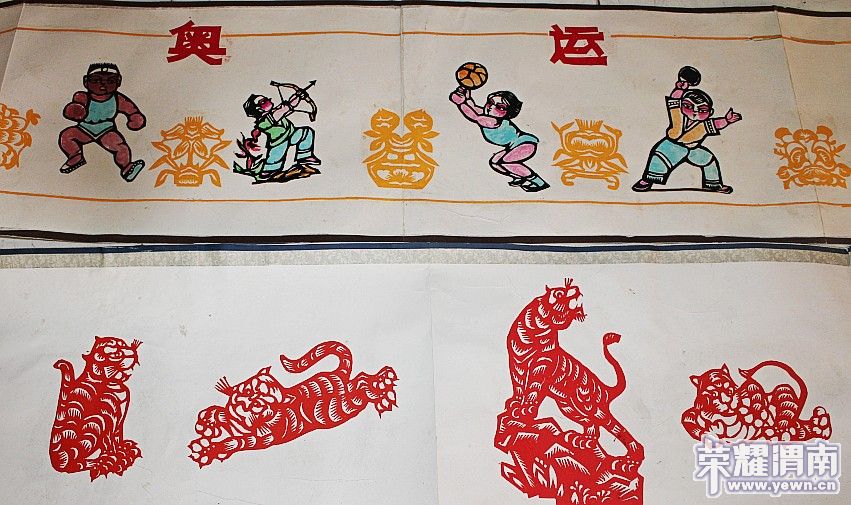 奥 运
荣耀渭南
www.yewn.cn